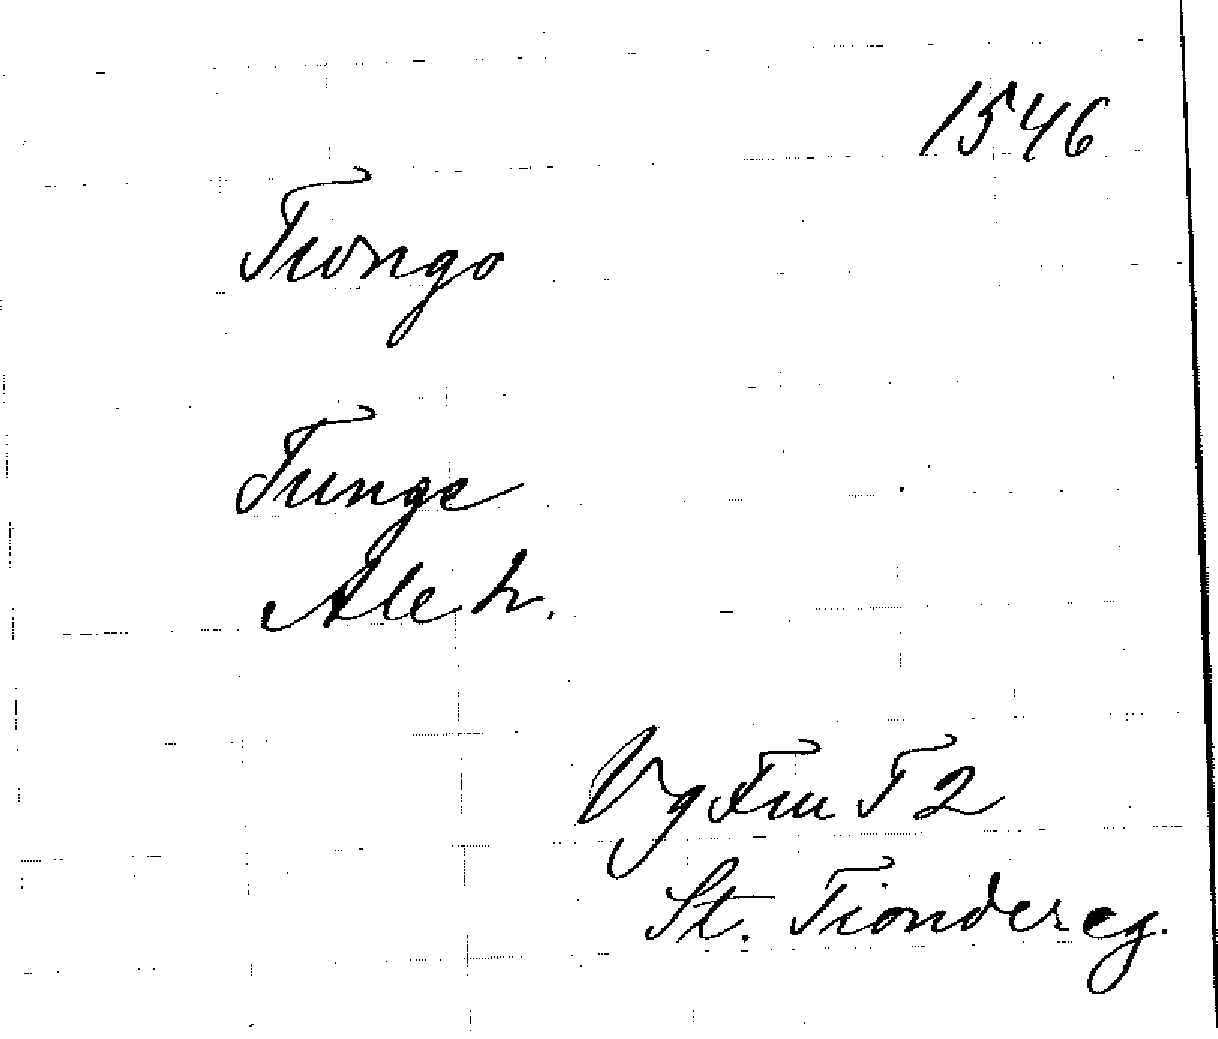 1546
Tiongo
Tunge
Ale h.
Vg Fru T 2
St. Tiondereg.